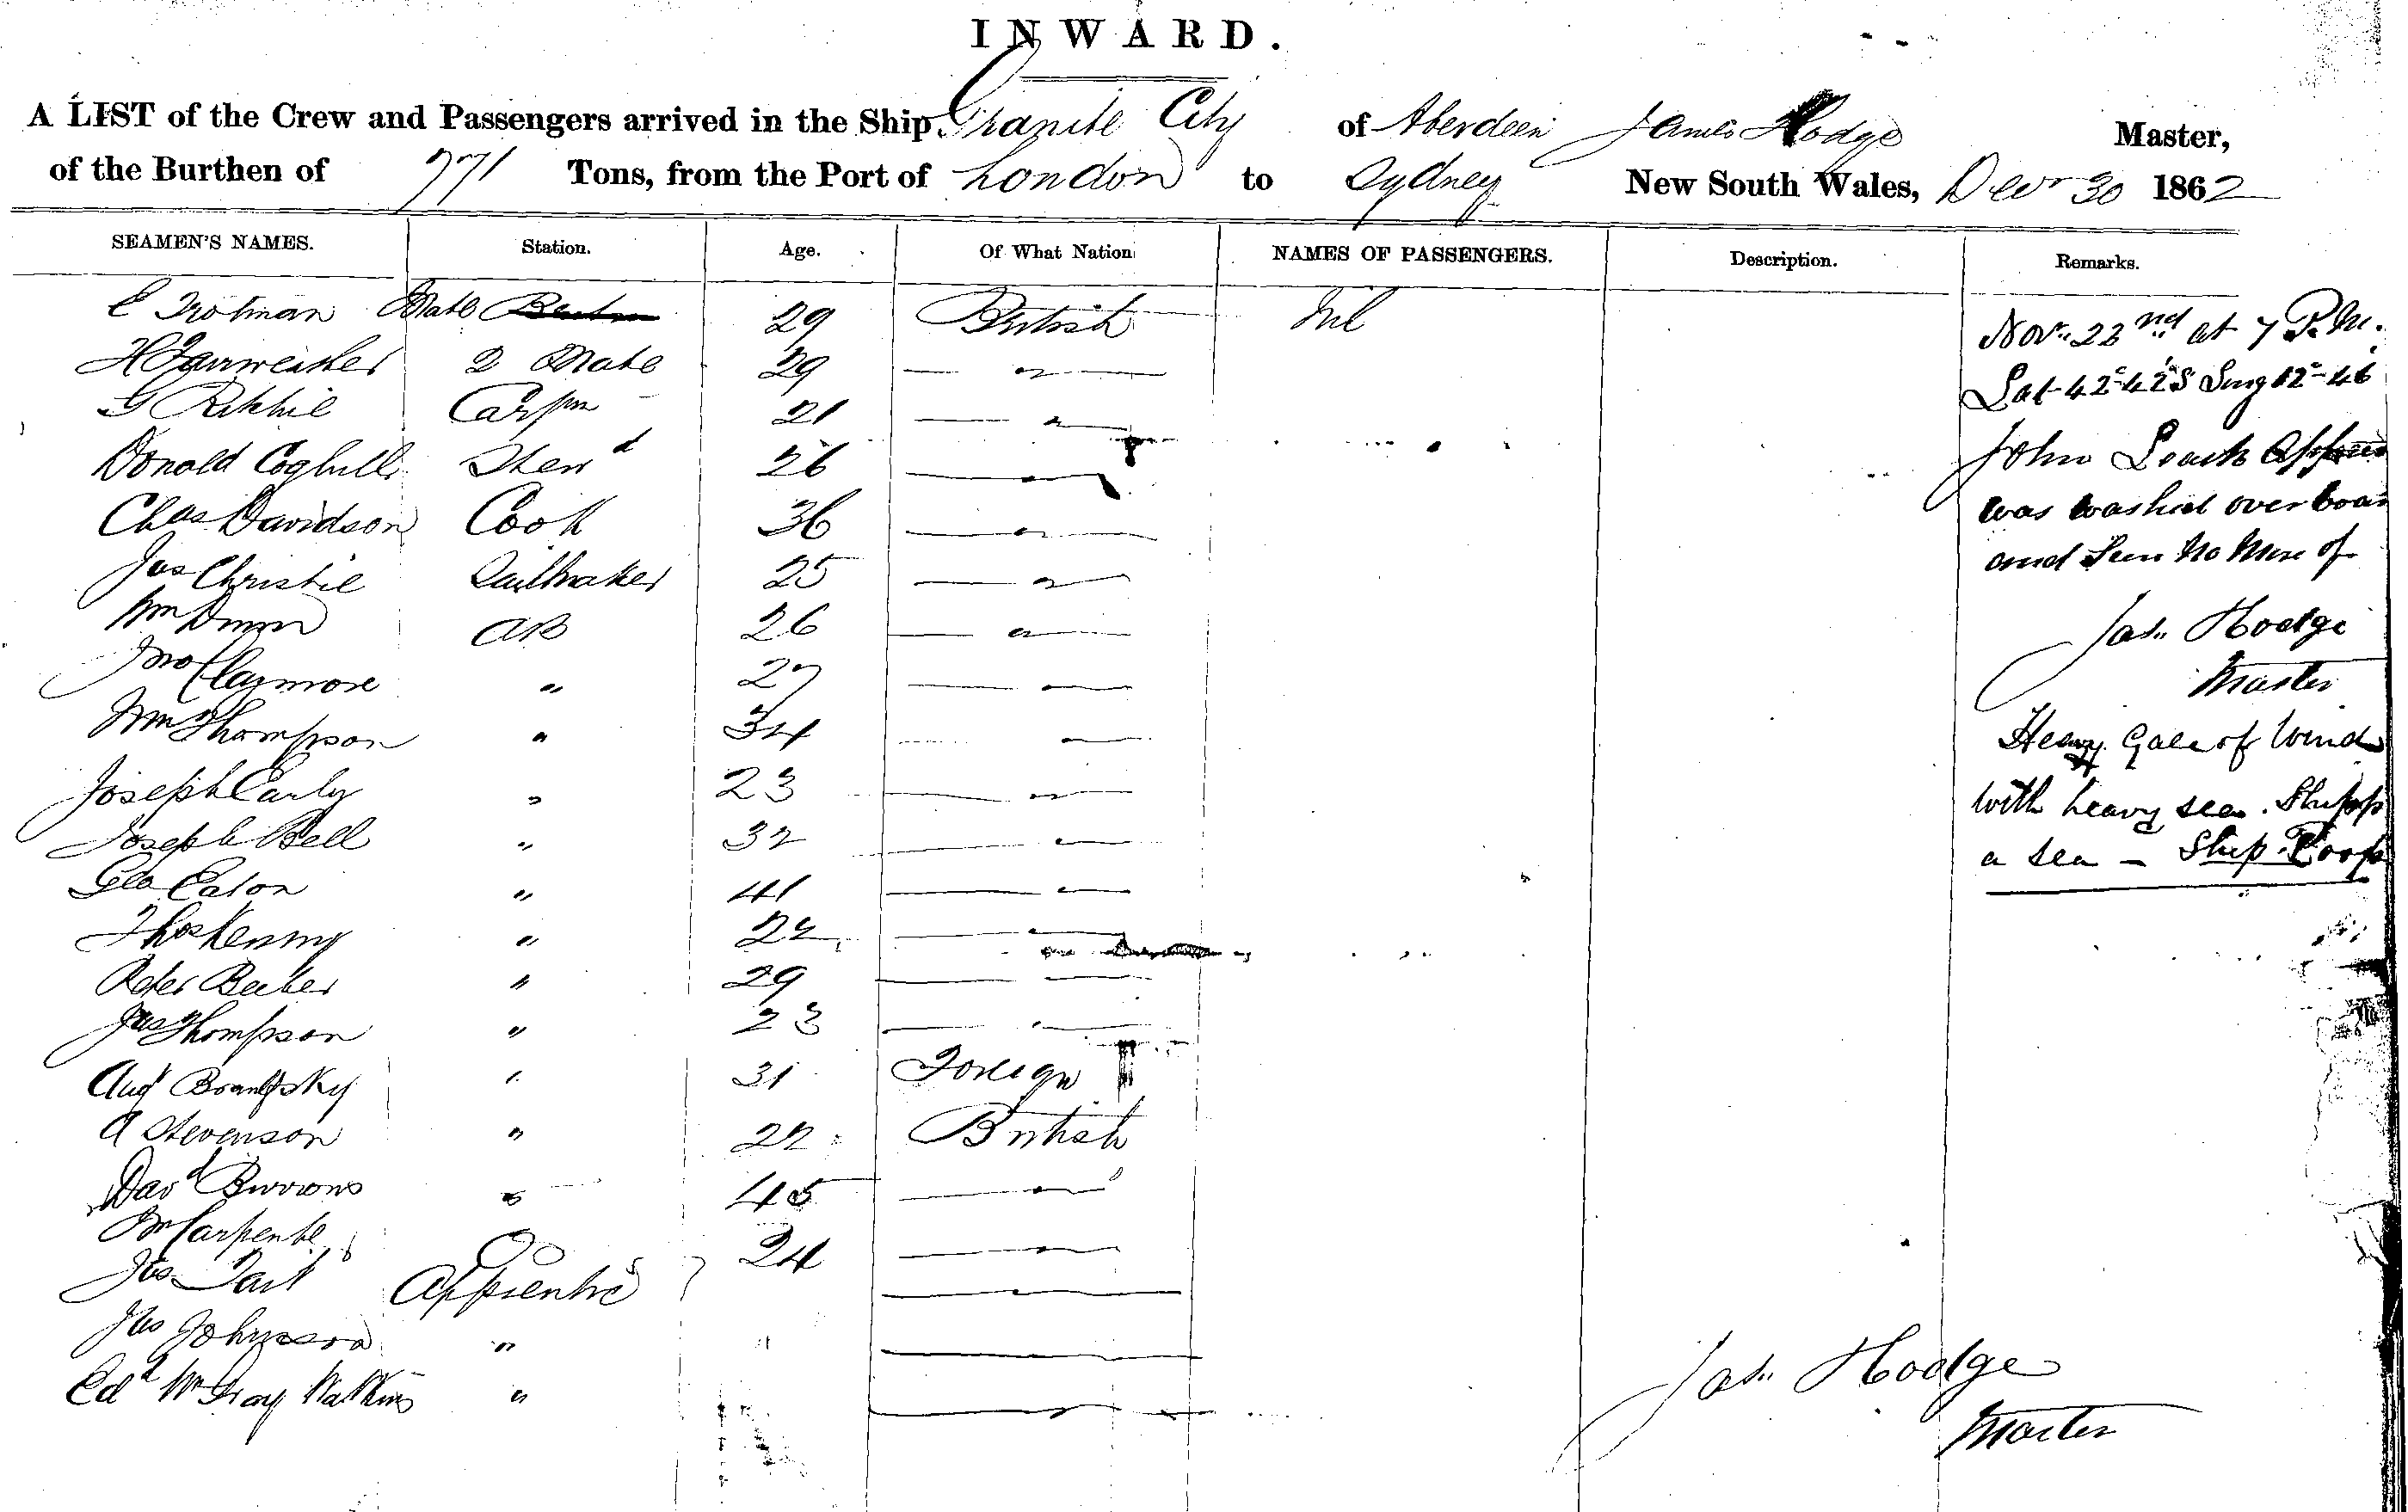 INWARD.
A LIST of the Crew and Passengers arrived in the Ship Granite City of Aberdeen James Hodge Master,
of the Burthen of 771 Tons, from the Port of London to Sydney New South Wales, Decr 30 1862
SEAMEN'S NAMES. Station. Age. Of What Nation NAMES OF PASSENGERS. Description. Remarks.
E Trotman Mate 29 British Nil
H Fairweather 2 Mate 29 — " —
G Ritchie Carpr 21 — " —
Donald Coghill Stewd 26 — " —
Chas Davidson Cook 36 — " —
Jas Christie Sailmaker 25 — " —
Wm AB 26 — " —
Jno Claymore " 27 — " —
Wm Thompson " 34 — " —
Joseph Early " 23 — " —
Joseph Bell " 32 — " —
Geo Eaton " 41 — " —
Thos Kenny " 22 — " —
Peter Becker " 29 — " —
Jas Thompson " 23 — " —
Augt " 31 Foreign
A Stevenson " 22 British
Davd Burrows " 45 — " —
Carpenter Do 24 — " —
Jas Tait Apprentics — " —
Jas Johnson "
Edd Wm Gray Watkins "
Novr 23nd at 7 P.M.
Lat 42°42'S Long 12°46
John Leach Appren
was washed overboar
and Seen No More of
Jas. Hodge
Master
Heavy Gale of Wind
with heavy sea. Shipp
a sea — Ship Poop
Jas. Hodge
Master